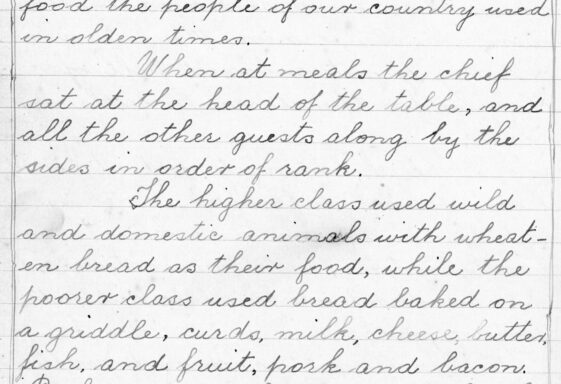 food the people of our country used
in olden times.
When at meals the chief
sat at the head of the table, and
all the other guests along by the
sides in order of rank.
The higher class used wild
and domestic animals with wheat-
en bread as their food, while the
poorer class used bread baked on
a griddle, curds, milk, cheese, butter,
fish, and fruit, pork and bacon.